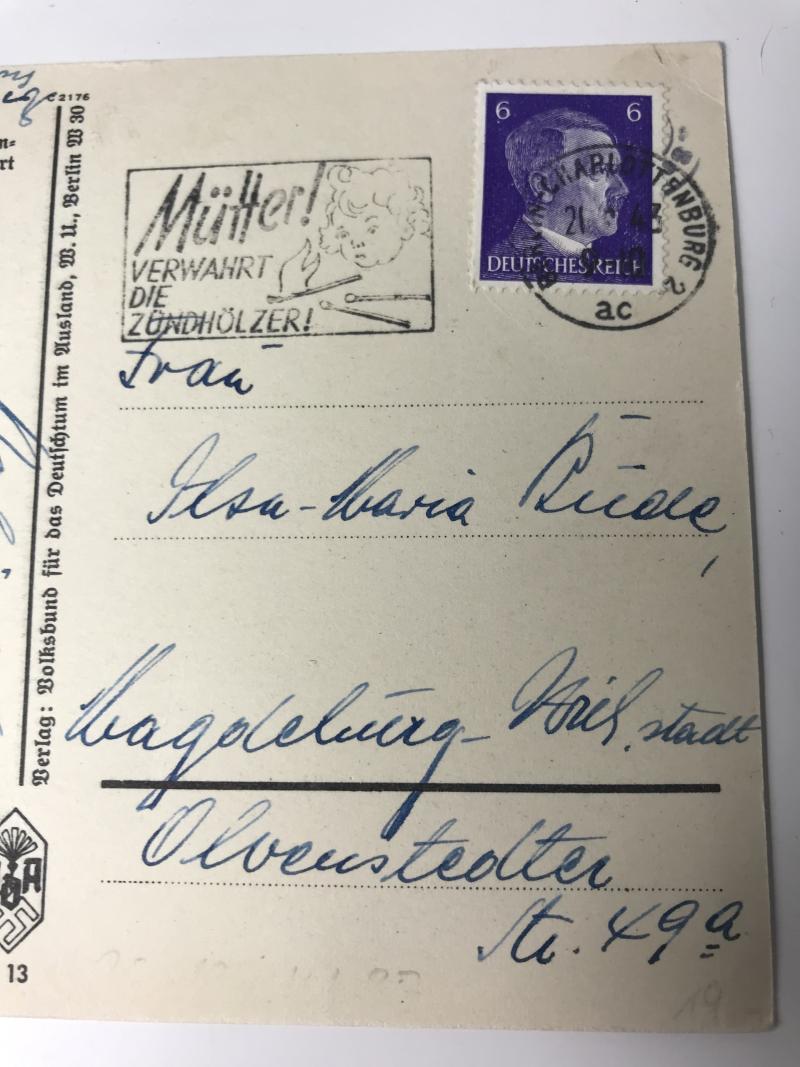 C 2176
n-
rt
Verlag: Volksbund für das Deutschtum im Ausland, W. U., Berlin W 30
13
Mütter!
VERWAHRT
DIE
ZÜNDHÖLZER!
6 6
DEUTSCHES REICH
CHARLOTTENBURG
ac
Frau
Ilsa-Maria Büde,
Magdeburg-Wilh.stadt
Olvenstedter
Str. 49a
19